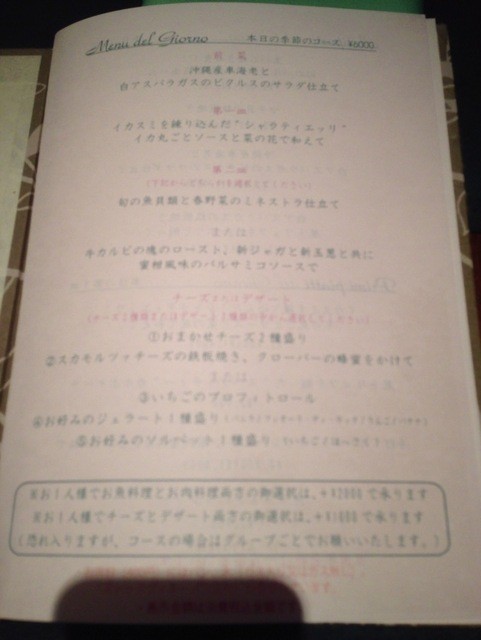 Menu del Giorno 本日の季節のコース ¥6000
前 菜
沖縄産車海老と
白アスパラガスのピクルスのサラダ仕立て
第一皿
イカスミを練り込んだ"シャラティエッリ"
イカ丸ごとソースと菜の花で和えて
第二皿
旬の魚貝類と春野菜のミネストラ仕立て
または
牛カルビの塊のロースト、新ジャガと新玉葱と共に
蜜柑風味のバルサミコソースで
チーズまたはデザート
①おまかせチーズ2種盛り
②スカモルツァチーズの鉄板焼き、クローバーの蜂蜜をかけて
または
③いちごのプロフィトロール
④お好みのジェラート1種盛り
⑤お好みのソルベット1種盛り
※お1人様でお魚料理とお肉料理両方の御選択は、+¥2000で承ります
※お1人様でチーズとデザート両方の御選択は、+¥1000で承ります
(恐れ入りますが、コースの場合はグループごとでお願いいたします。)